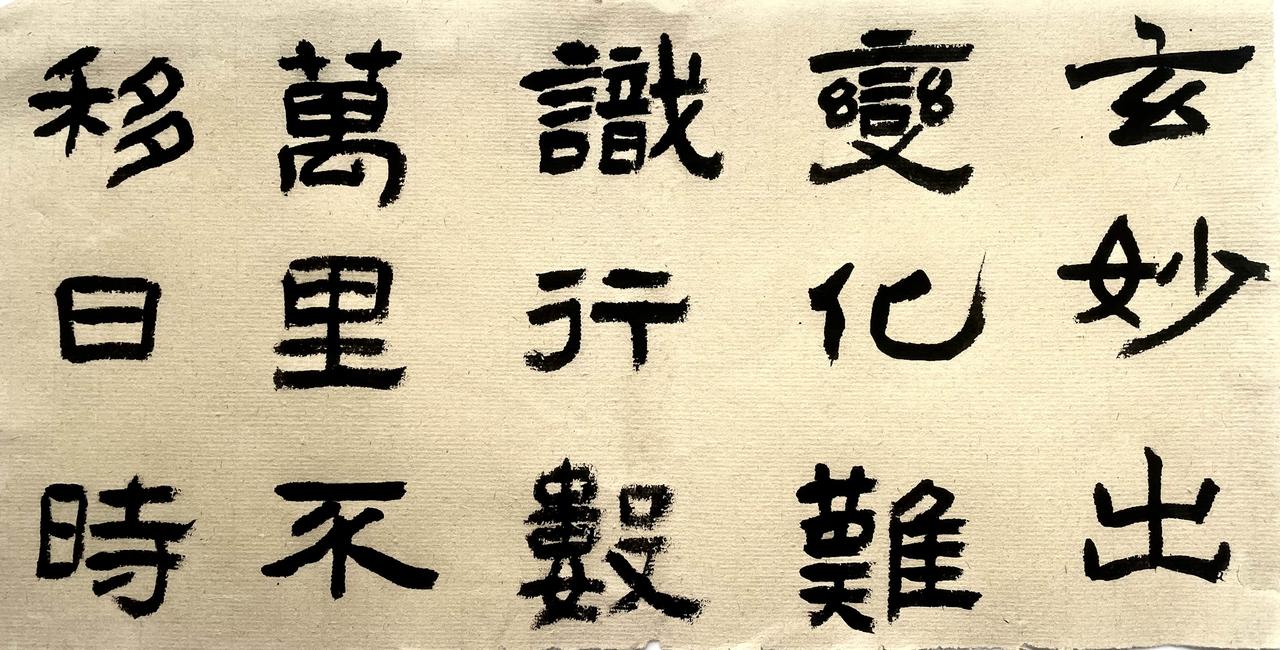 玄妙出
變化難
識行數
萬里不
移日時